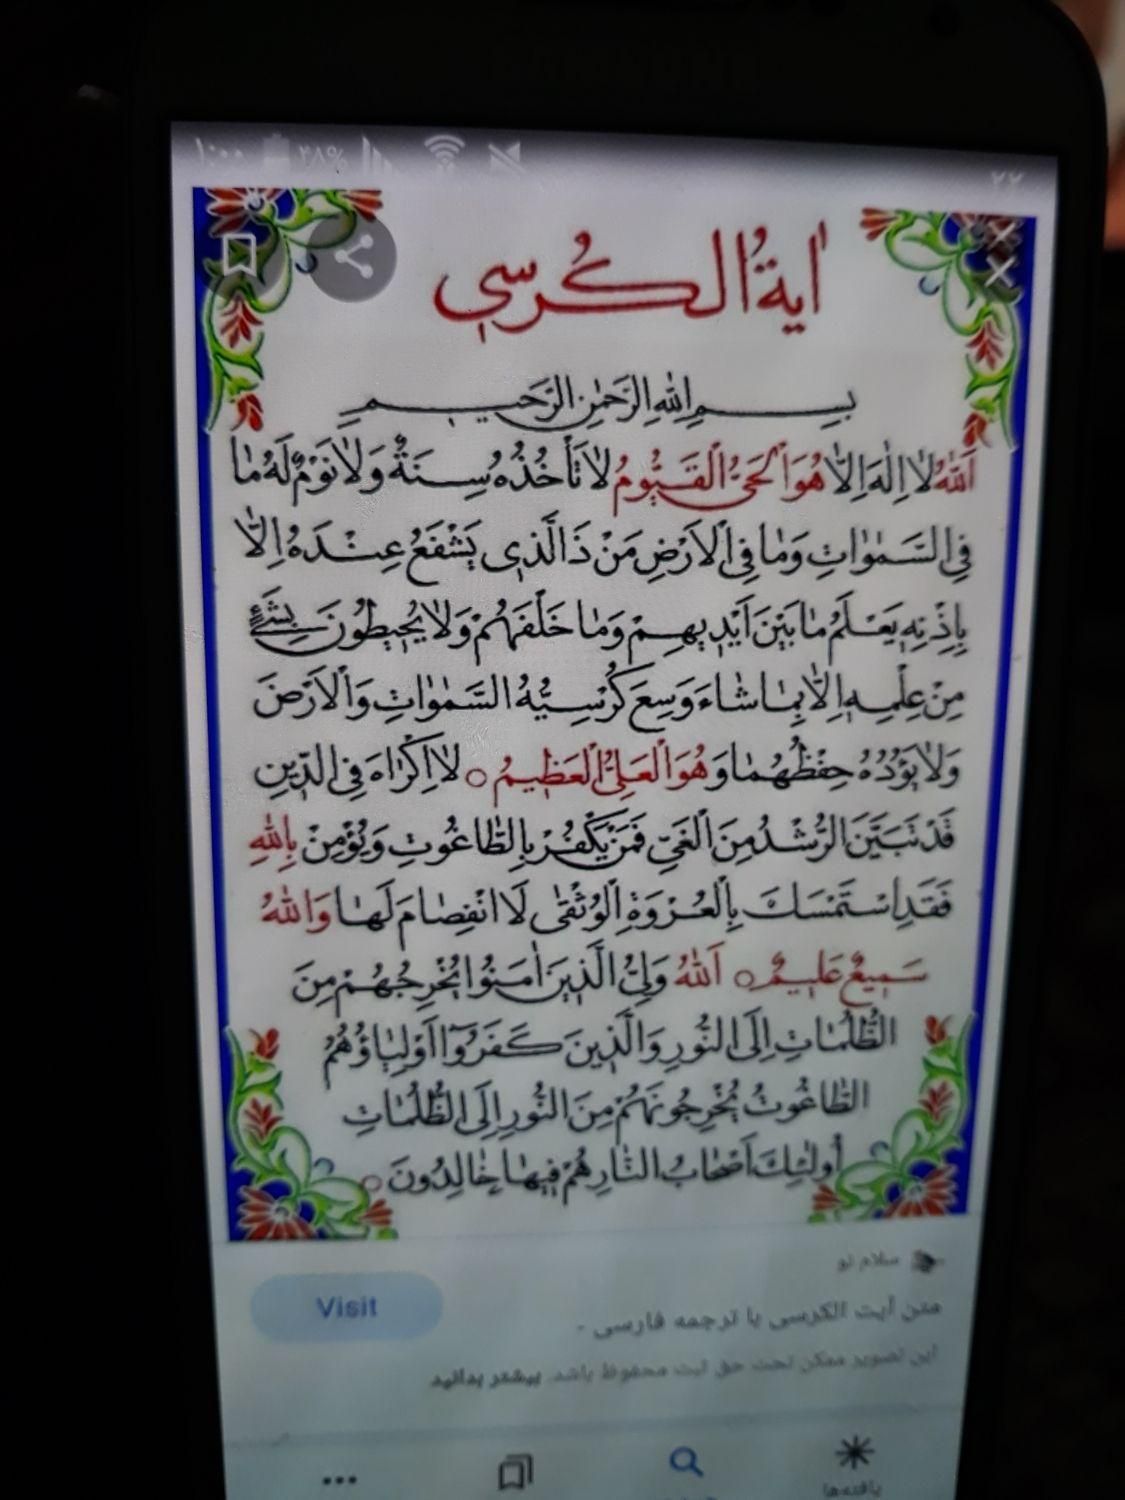 ۱:۰۰ ۲۸%
۲۲
اٰیةُ الکُرسي
بِسْمِ اللهِ الرَّحْمٰنِ الرَّحيمِ
اَللهُ لا اِلٰهَ اِلّا هُوَ الْحَيُّ الْقَيُّومُ لا تَأْخُذُهُ سِنَةٌ وَلا نَوْمٌ لَهُ ما
فِي السَّمٰواتِ وَما فِي الْاَرْضِ مَنْ ذَا الَّذي يَشْفَعُ عِنْدَهُ اِلّا
بِاِذْنِهِ يَعْلَمُ ما بَيْنَ اَيْديهِمْ وَما خَلْفَهُمْ وَلا يُحيطُونَ بِشَيْءٍ
مِنْ عِلْمِهِ اِلّا بِما شاءَ وَسِعَ كُرْسِيُّهُ السَّمٰواتِ وَالْاَرْضَ
وَلا يَؤُدُهُ حِفْظُهُما وَهُوَ الْعَلِيُّ الْعَظيمُ ○ لا اِكْراهَ فِي الدّينِ
قَدْ تَبَيَّنَ الرُّشْدُ مِنَ الْغَيِّ فَمَنْ يَكْفُرْ بِالطّاغُوتِ وَيُؤْمِنْ بِاللهِ
فَقَدِ اسْتَمْسَكَ بِالْعُرْوَةِ الْوُثْقٰى لَا انْفِصامَ لَها وَاللهُ
سَميعٌ عَليمٌ ○ اَللهُ وَلِيُّ الَّذينَ اٰمَنُوا يُخْرِجُهُمْ مِنَ
الظُّلُماتِ اِلَى النُّورِ وَالَّذينَ كَفَرُوٓا اَوْلِياؤُهُمُ
الطّاغُوتُ يُخْرِجُونَهُمْ مِنَ النُّورِ اِلَى الظُّلُماتِ
أُولٰئِكَ اَصْحابُ النّارِ هُمْ فيها خالِدُونَ ○
سلام نو
Visit
متن آیت الکرسی با ترجمه فارسی -
این تصویر ممکن تحت حق ثبت محفوظ باشد. بیشتر بدانید
یافته‌ها